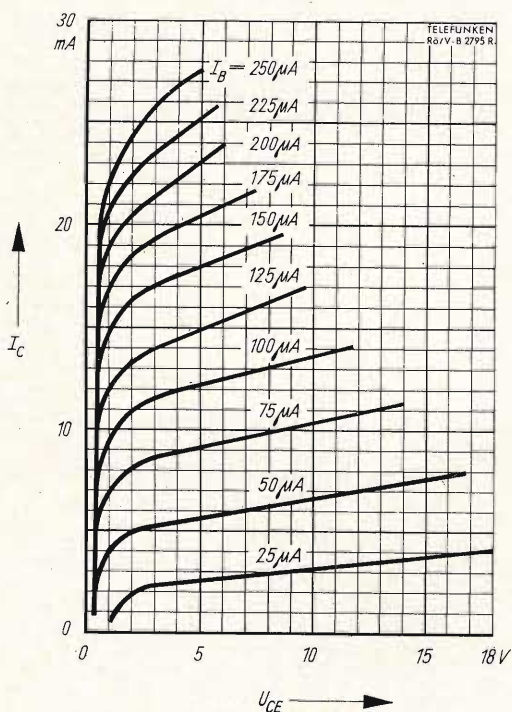 30
mA
TELEFUNKEN
Rö/V-B 2795 R.
I_B = 250 μA
225 μA
200 μA
175 μA
150 μA
125 μA
100 μA
75 μA
50 μA
25 μA
20
I_C
10
0
0 5 10 15 18 V
U_CE